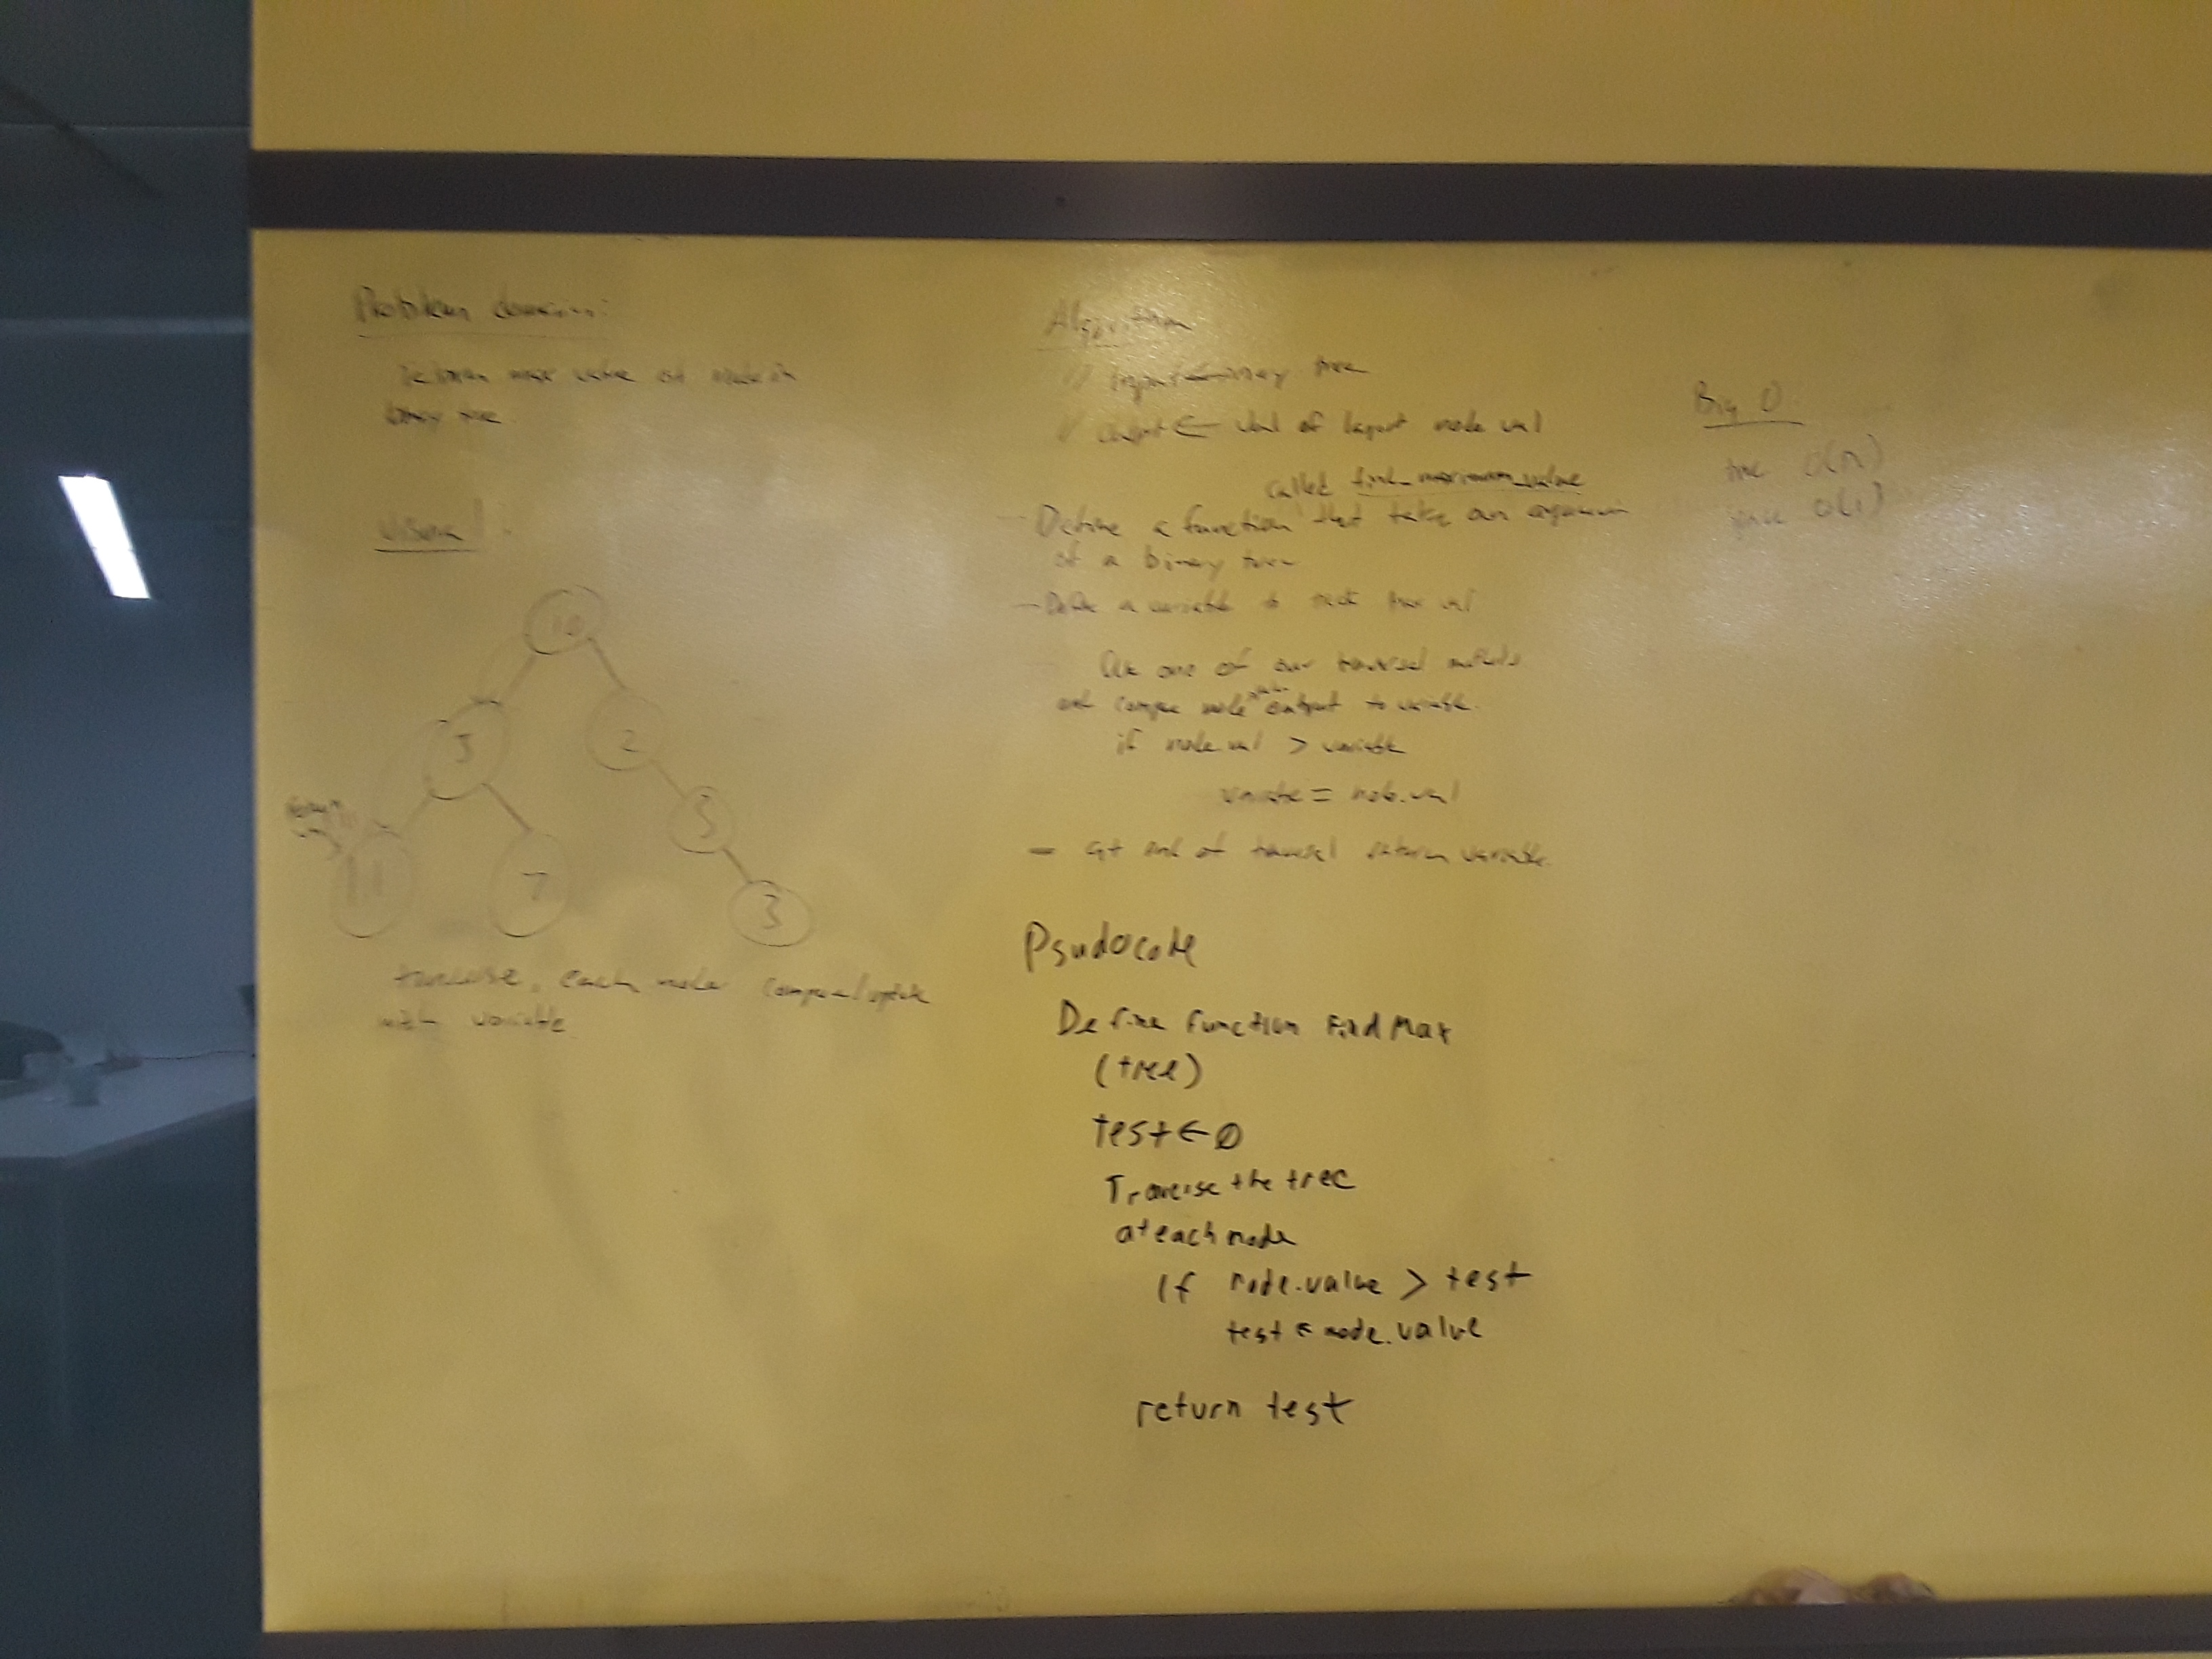 Problem domain:
return max value of node in
binary tree.
Visual:
10
5
2
11
7
5
3
traverse, each node compare/update
with variable
Algorithm
// Input ← binary tree
// output ← val of largest node val
called find_maximum_value
- Define a function that take an
of a binary tree
- Define a variable to track max val
one of our traversal methods
and compare node output to variable.
if node.val > variable
variable = node.val
- at end of traversal return variable.
Psudocode
Define function Find Max
(tree)
test ← 0
Traverse the tree
at each node
If node.value > test
test ← node.value
return test
Big O:
time O(n)
space O(1)